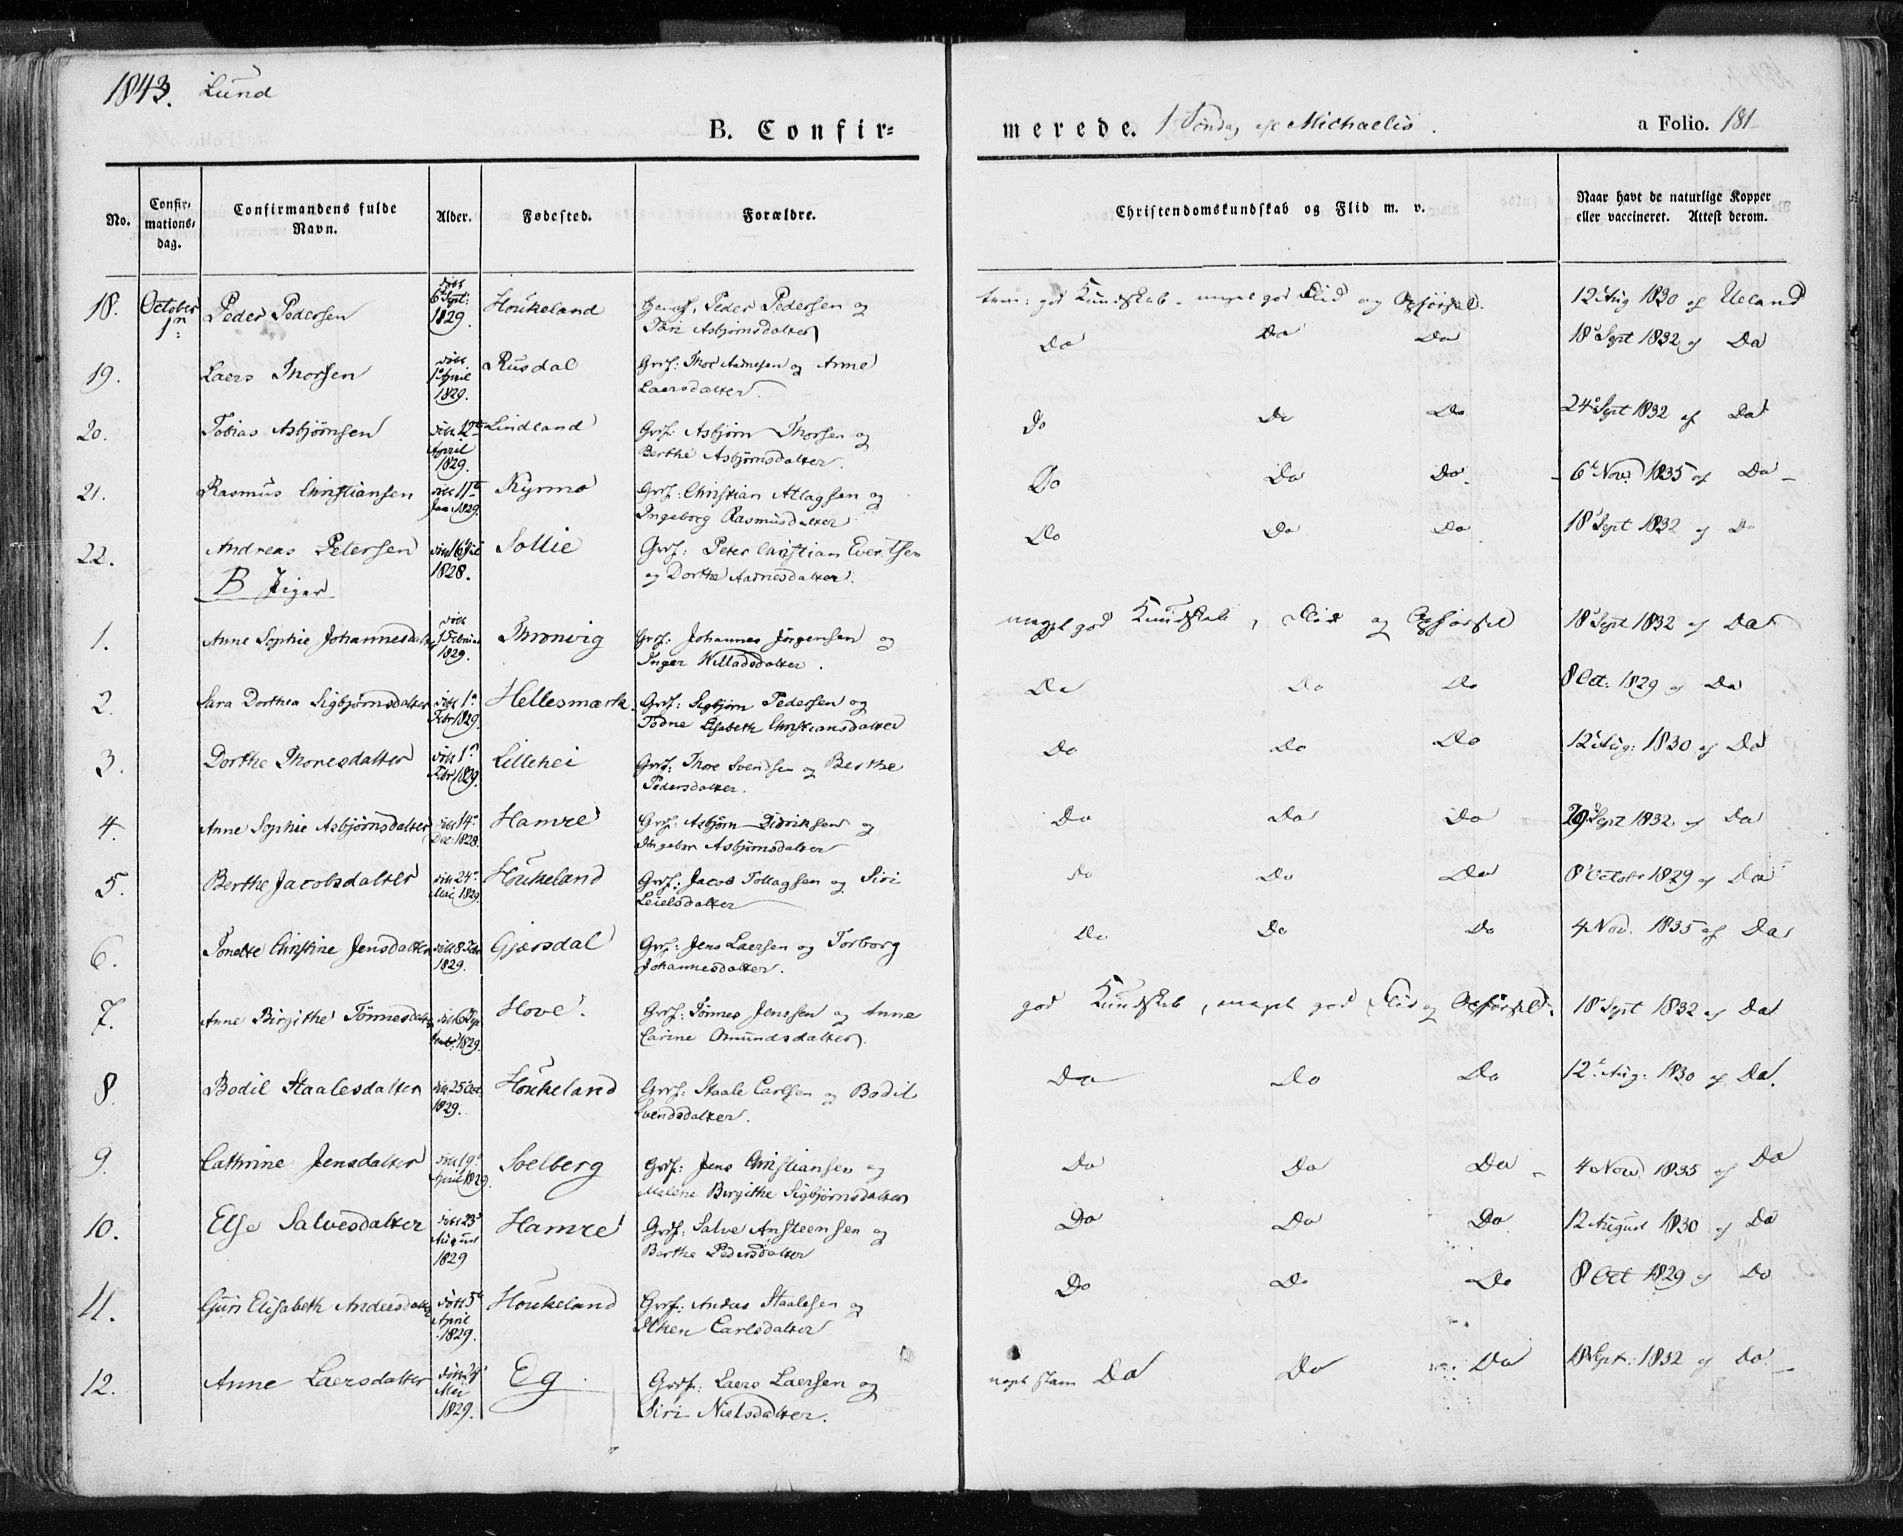 1843. Lund
B. Confirmerede. 1 Søndag eft Michaelis. a Folio. 181
No. | Confirmationsdag. | Confirmandens fulde Navn. | Alder. | Fødested. | Forældre. | Christendomskundskab og Flid m. v. | Naar havt de naturlige Kopper eller vaccineret. Attest derom.
18. | October 1n | Peder Pedersen | født 6 Sept: 1829. | Houkeland | Peder Pedersen og Tori Asbjørnsdatter | god Kundskab. meget god Flid og Opførsel. | 12 Aug 1830 af Ueland
19. | Laers Thorsen | født 1 April 1829. | Rusdal | Grdf: Thor Aadnesen og Anne Laersdatter. | Do Do Do | 18 Sept 1832 af Do
20. | Tobias Asbjørnsen | født 12te April 1829. | Lindland | Grdf: Asbjørn Thorsen og Berthe Asbjørnsdatter. | Do Do Do | 24 Sept 1832 af Do
21. | Rasmus Christiansen | født 11te Jan: 1829 | Kymno | Grdf: Christian Atlagsen og Ingeborg Rasmusdatter | Do Do Do | 6 Nov. 1835 af Do
22. | Andreas Petersen | født 16 1828. | Sollie | Grdf: Peter Christian Evertsen og Dorthe Aadnesdatter. | Do Do Do | 18 Sept 1832 af Do
B Piger
1. | Anne Sophie Johannesdatter | født 1 Februar 1829. | Thronvig | Grdf: Johannes Jørgensen og Inger Willadsdatter. | meget god Kundskab, Flid og Opførsel | 18 Sept 1832 af Do
2. | Sara Dorthea Sigbjørnsdatter | født 1 Febr 1829. | Hellesmark | Grdf: Sigbjørn Pedersen og Todne Elisabeth Christiansdatter | Do Do Do | 8 Oct: 1829 af Do
3. | Dorthe Thoresdatter | født 1 Febr 1829. | Lillehei | Grdf: Thore Svendsen og Berthe Pedersdatter. | Do Do Do | 12 Aug: 1830 af Do
4. | Anne Sophie Asbjørnsdatter | født 14 Dec: 1828. | Hamre | Grdf: Asbjørn Didriksen og Ingebor Asbjørnsdatter | Do Do Do | 29 Sept 1832 af Do
5. | Berthe Jacobsdatter | født 24 Mai 1829. | Houkeland | Grdf: Jacob Tollagsen og Siri Leielsdatter | Do Do Do | 8 Octobr 1829 af Do
6. | Tonette Christine Jensdatter | født 8 1829. | Gjersdal | Grdf: Jens Laersen og Torborg Johannesdatter. | Do Do Do | 4 Nov. 1835 af Do
7. | Anne Birgithe Tønnesdatter | født 6 1829. | Hove. | Grdf: Tønnes Jenssen og Anne Carine Omundsdatter. | god Kundskab, meget god Flid og Opførsel. | 18 Sept 1832 af Do
8. | Bodil Staalesdatter | født 25 Oct 1829. | Houkeland | Grdf: Staale Carlsen og Bodil Svendsdatter. | Do Do Do | 12 Aug: 1830 af Do.
9. | Cathrine Jensdatter | født 19 April 1829. | Soelberg | Grdf: Jens Christiansen og Malene Birgithe Sigbjørnsdatter | Do Do Do | 4 Nov 1835 af Do
10. | Else Salvesdatter | født 23 August 1829 | Hamre | Grdf: Salve Ansteensen og Berthe Pedersdatter | Do Do Do | 12 August 1830 af Do
11. | Guri Elisabeth Andersdatter | født 5 April 1829. | Houkeland | Grdf: Anders Staalesen og Ilken Carlsdatter | Do Do Do | 8 Oct 1829 af Do
12. | Anne Laersdatter | født Mai 1829. | Eg | Grdf: Laers Laersen og Siri Nielsdatter. | Do Do Do | 18 Sept: 1832 af Do.